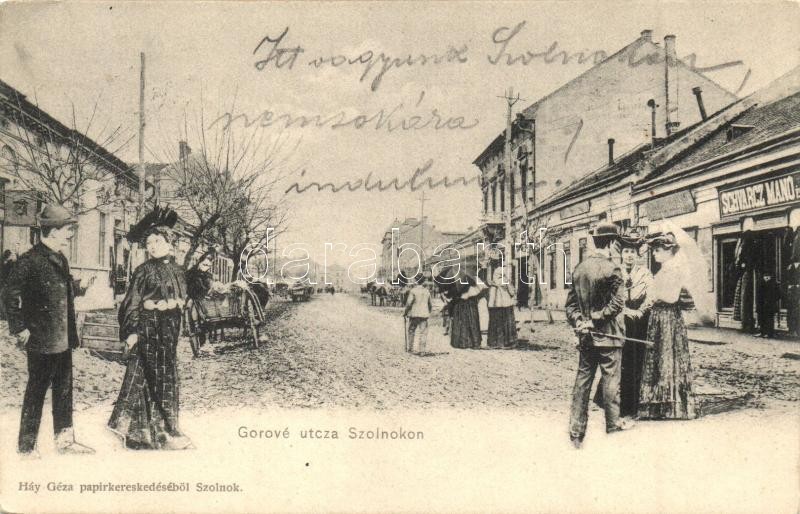 Itt vagyunk Szolnokon
nemsokára
indulunk
SCHVARCZ MANÓ
darabanth
Gorové utcza Szolnokon
Háy Géza papirkereskedéséből Szolnok.